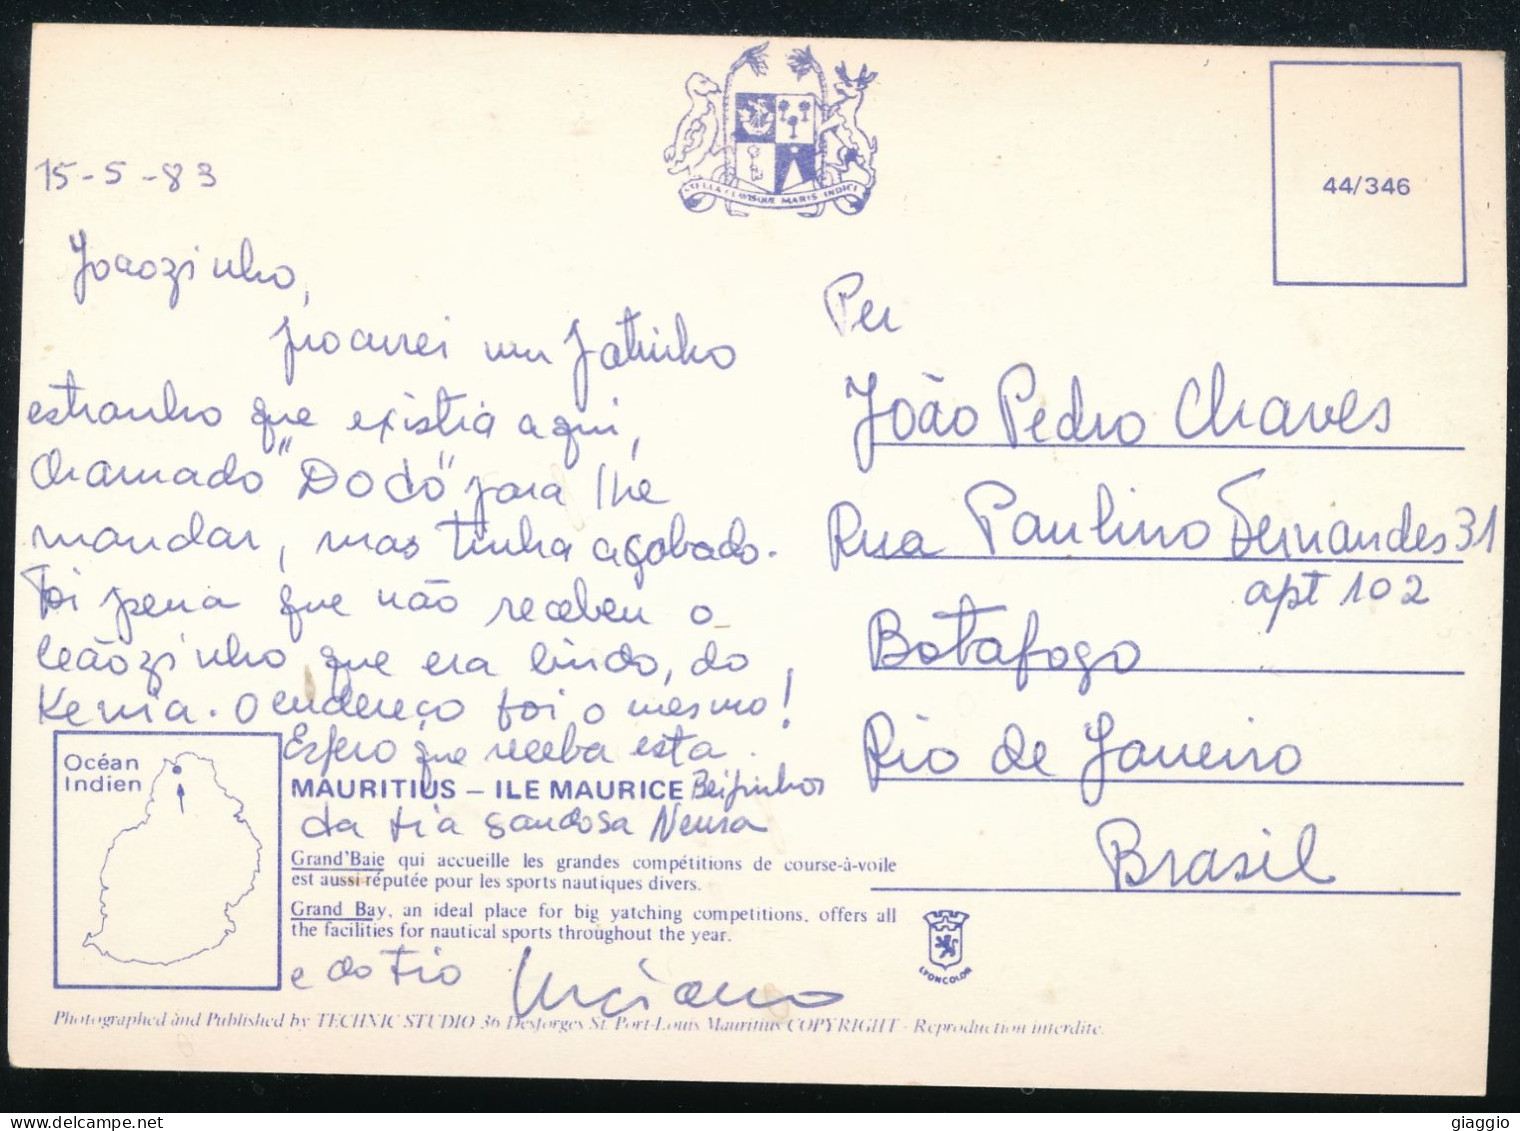 15-5-83
Joaozinho,
procurei um Patinho
estranho que existia aqui,
chamado "Dodô" para lhe
mandar, mas tinha acabado.
Foi pena que não recebeu o
leãozinho que era lindo, do
Kenia. O endereço foi o mesmo!
Espero que receba esta.
MAURITIUS – ILE MAURICE Beijinhos
da tia saudosa Neusa
Grand'Baie qui accueille les grandes compétitions de course-à-voile
est aussi réputée pour les sports nautiques divers.
Grand Bay, an ideal place for big yatching competitions, offers all
the facilities for nautical sports throughout the year.
e do tio Luciano
Océan
Indien
Photographed and Published by TECHNIC STUDIO 36 Desforges St. Port-Louis Mauritius COPYRIGHT - Reproduction interdite.
STELLA CLAVISQUE MARIS INDICI
44/346
Per
João Pedro Chaves
Rua Paulino Fernandes 31
apt 102
Botafogo
Rio de Janeiro
Brasil
LYONCOLOR
www.delcampe.net
giaggio